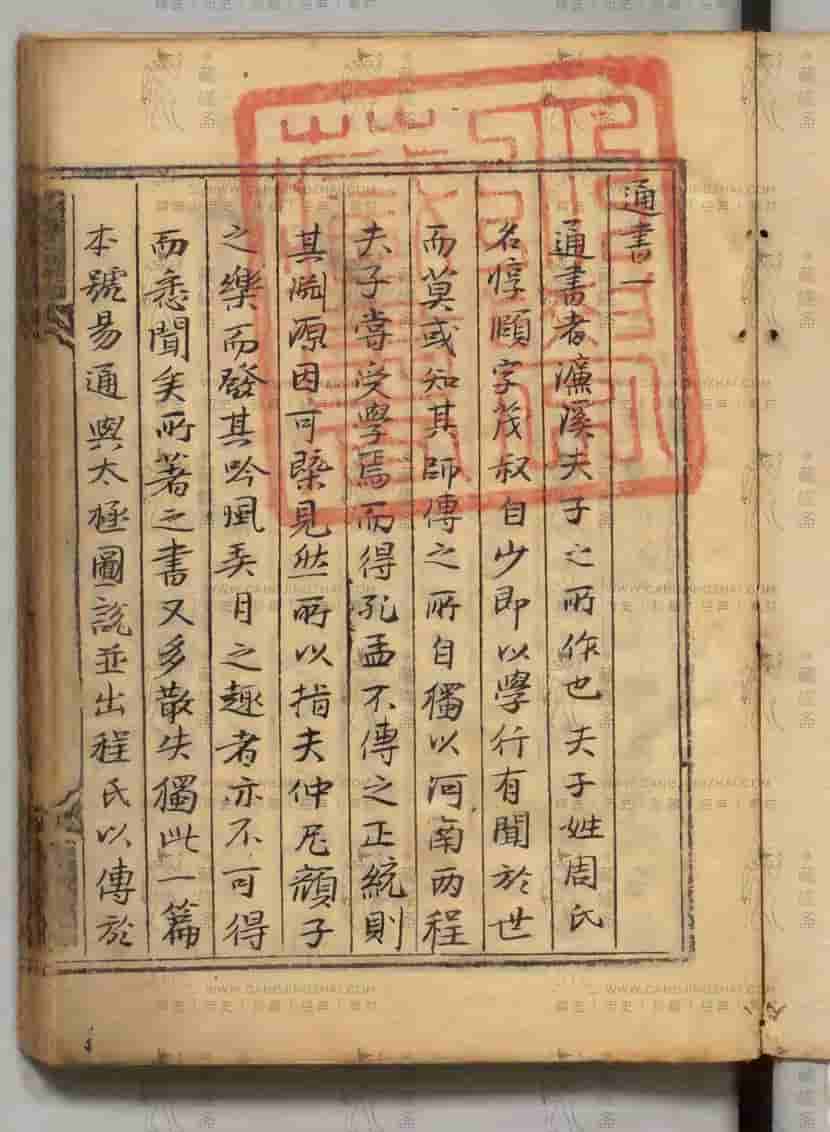 通書一
通書者濂溪夫子之所作也夫子姓周氏
名惇頤字茂叔自少即以學行有聞於世
而莫或知其師傳之所自獨以河南两程
夫子嘗受學焉而得孔孟不傳之正統則
其淵源因可槩見然所以指夫仲尼顔子
之樂而發其吟風弄月之趣者亦不可得
而悉聞矣所著之書又多散失獨此一篇
本號易通與太極圖說並出程氏以傳於
WWW.CANGJINGZHAI.COM